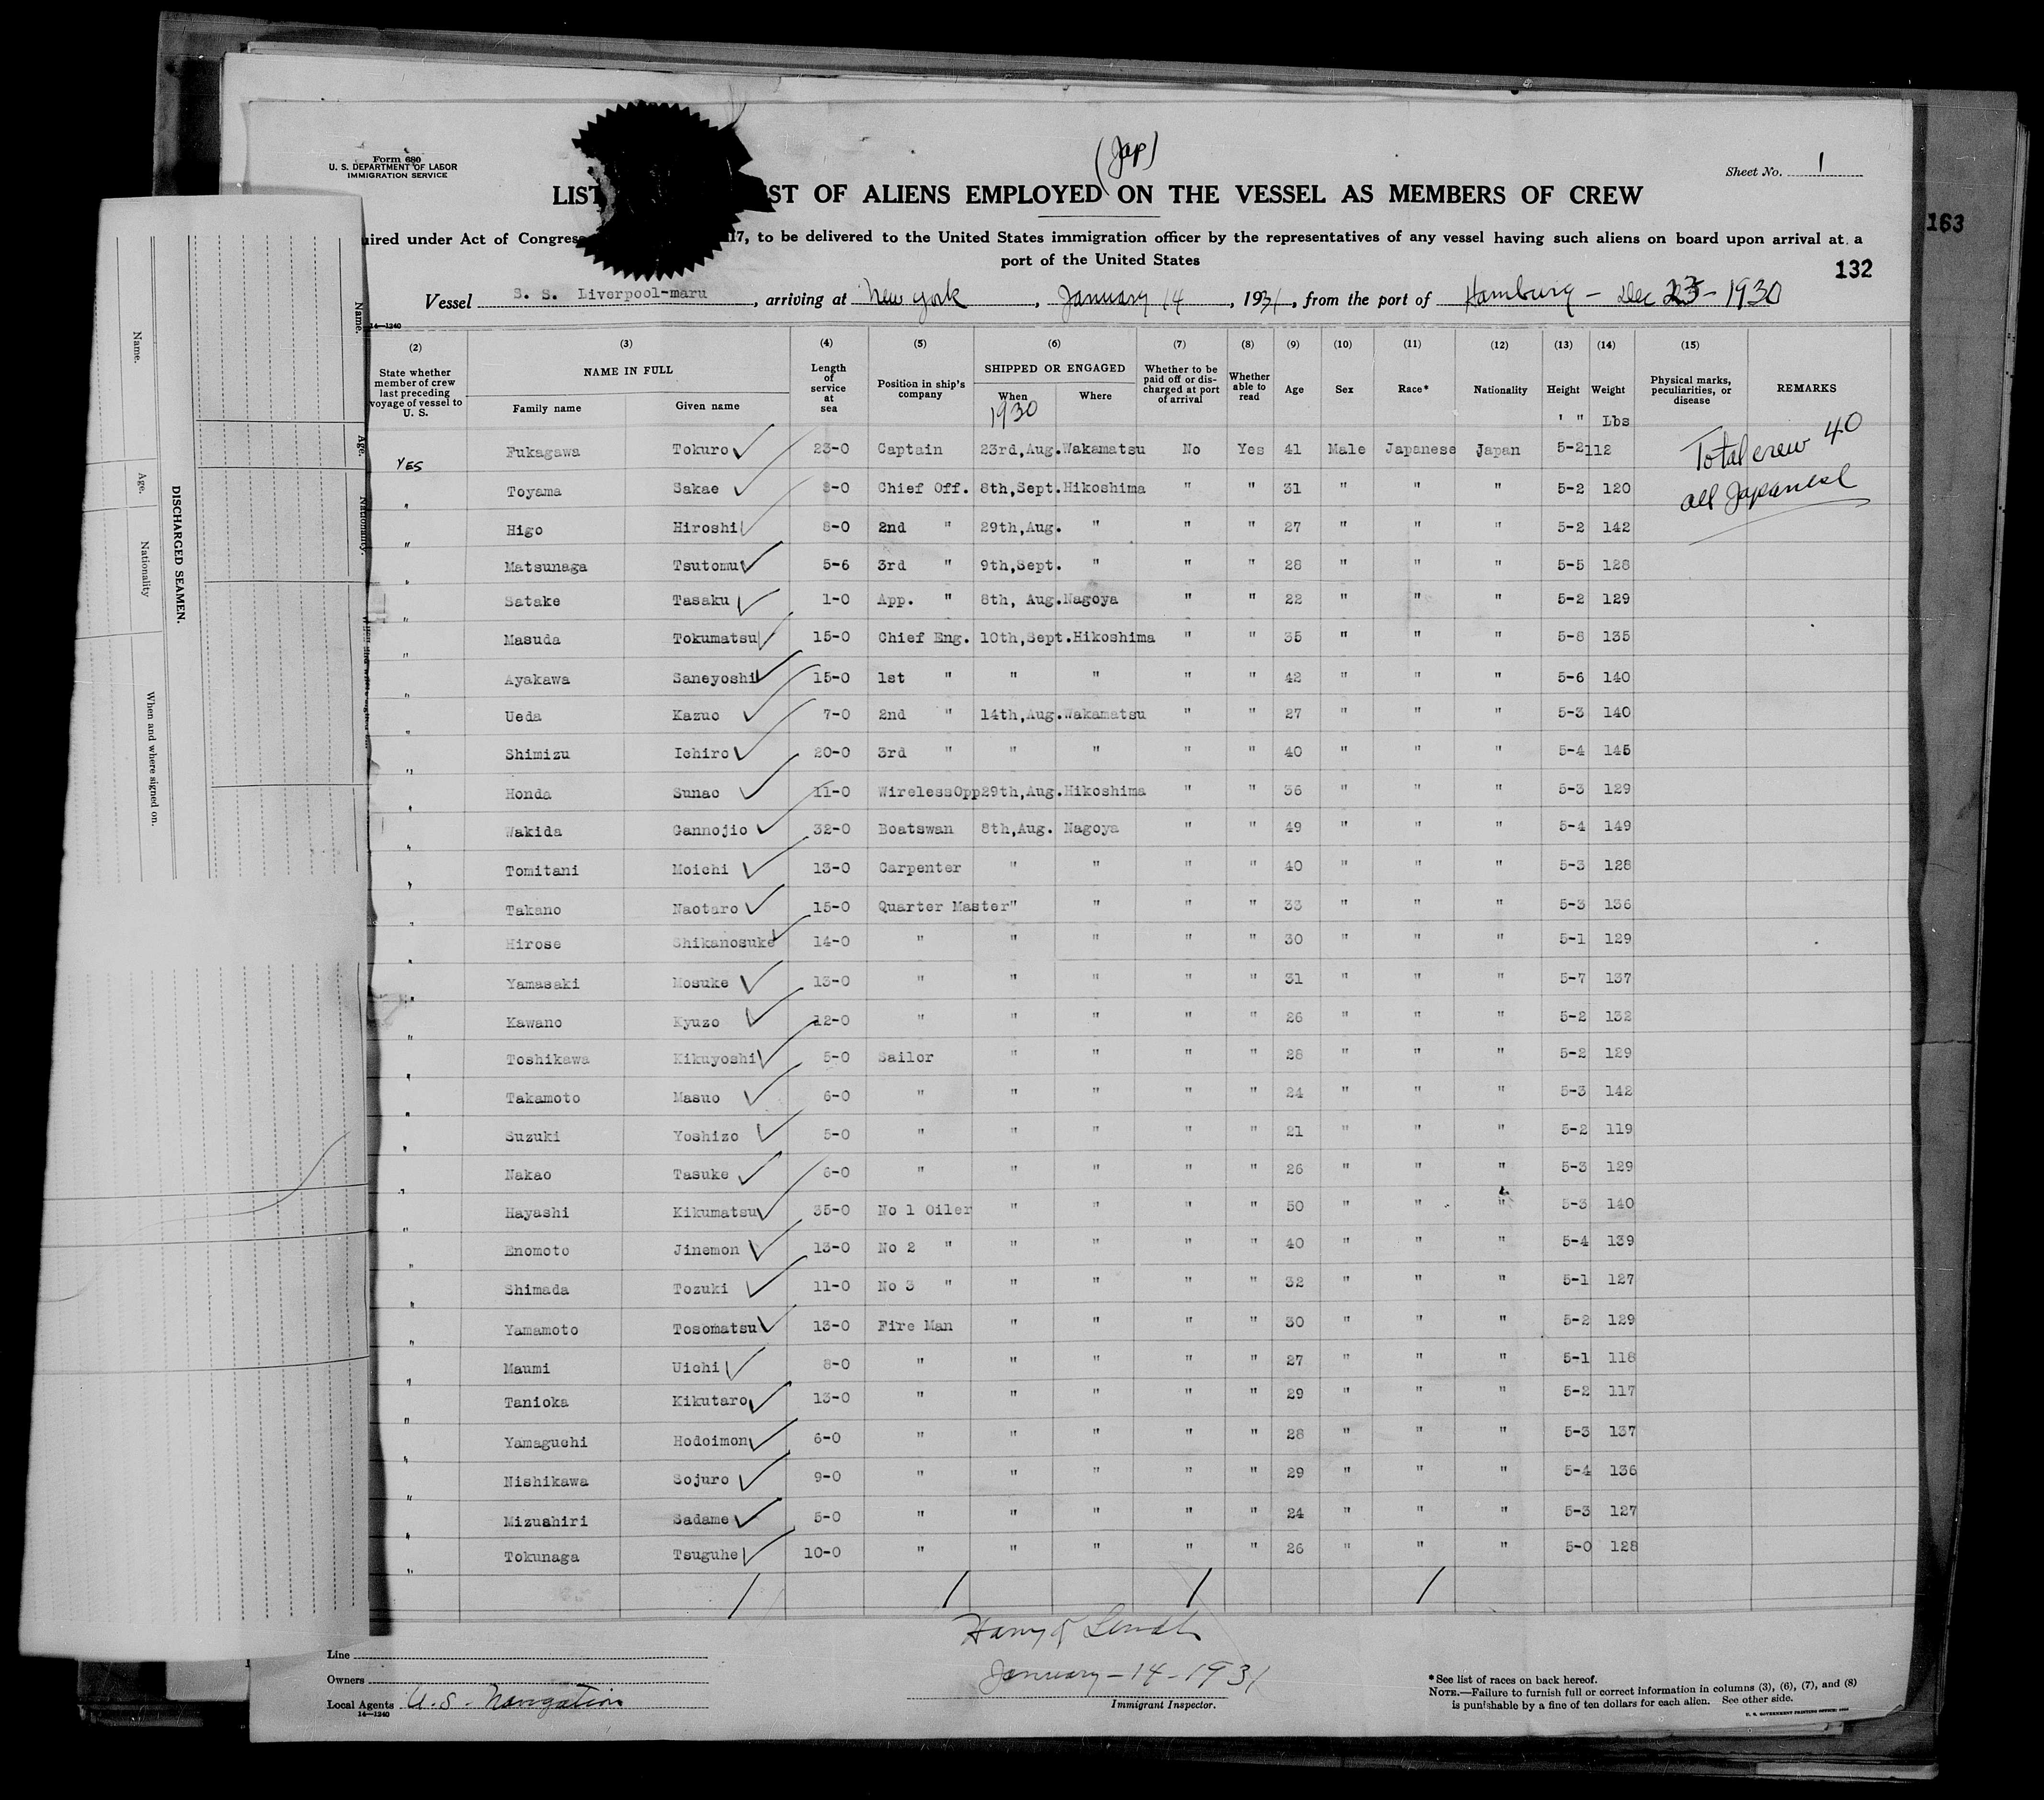 Form 680
U. S. DEPARTMENT OF LABOR
IMMIGRATION SERVICE
(Jap)
Sheet No. 1
LIST ST OF ALIENS EMPLOYED ON THE VESSEL AS MEMBERS OF CREW
163
uired under Act of Congress 17, to be delivered to the United States immigration officer by the representatives of any vessel having such aliens on board upon arrival at a
port of the United States
132
Vessel S. S. Liverpool-maru, arriving at New York, January 14, 1931, from the port of Hamburg - Dec 23 - 1930
14—1240
(2) (3) (4) (5) (6) (7) (8) (9) (10) (11) (12) (13) (14) (15)
State whether member of crew last preceding voyage of vessel to U. S. NAME IN FULL Family name Given name Length of service at sea Position in ship's company SHIPPED OR ENGAGED When Where Whether to be paid off or discharged at port of arrival Whether able to read Age Sex Race* Nationality Height Weight Physical marks, peculiarities, or disease REMARKS
1930 ' " Lbs
YES Fukagawa Tokuro 23-0 Captain 23rd,Aug. Wakamatsu No Yes 41 Male Japanese Japan 5-2 112 Total crew 40
" Toyama Sakae 8-0 Chief Off. 8th,Sept. Hikoshima " " 31 " " " 5-2 120 all Japanese
" Higo Hiroshi 8-0 2nd " 29th,Aug. " " " 27 " " " 5-2 142
" Matsunaga Tsutomu 5-6 3rd " 9th,Sept. " " " 28 " " " 5-5 128
" Satake Tasaku 1-0 App. " 8th, Aug. Nagoya " " 22 " " " 5-2 129
" Masuda Tokumatsu 15-0 Chief Eng. 10th,Sept. Hikoshima " " 35 " " " 5-8 135
" Ayakawa Saneyoshi 15-0 1st " " " " " 42 " " " 5-6 140
" Ueda Kazuo 7-0 2nd " 14th,Aug. Wakamatsu " " 27 " " " 5-3 140
" Shimizu Ichiro 20-0 3rd " " " " " 40 " " " 5-4 145
" Honda Sunao 11-0 WirelessOpp 29th,Aug. Hikoshima " " 36 " " " 5-3 129
" Wakida Gannojio 32-0 Boatswan 8th,Aug. Nagoya " " 49 " " " 5-4 149
" Tomitani Moichi 13-0 Carpenter " " " " 40 " " " 5-3 128
" Takano Naotaro 15-0 Quarter Master " " " " 33 " " " 5-3 136
" Hirose Shikanosuke 14-0 " " " " " 30 " " " 5-1 129
" Yamasaki Mosuke 13-0 " " " " " 31 " " " 5-7 137
" Kawano Kyuzo 12-0 " " " " " 26 " " " 5-2 132
" Toshikawa Kikuyoshi 5-0 Sailor " " " " 28 " " " 5-2 129
" Takamoto Masuo 6-0 " " " " " 24 " " " 5-3 142
" Suzuki Yoshizo 5-0 " " " " " 21 " " " 5-2 119
" Nakao Tasuke 6-0 " " " " " 26 " " " 5-3 129
" Hayashi Kikumatsu 35-0 No 1 Oiler " " " " 50 " " " 5-3 140
" Enomoto Jinemon 13-0 No 2 " " " " " 40 " " " 5-4 139
" Shimada Tozuki 11-0 No 3 " " " " " 32 " " " 5-1 127
" Yamamoto Tosomatsu 13-0 Fire Man " " " " 30 " " " 5-2 129
" Maumi Uichi 8-0 " " " " " 27 " " " 5-1 118
" Tanioka Kikutaro 13-0 " " " " " 29 " " " 5-2 117
" Yamaguchi Hodoimon 6-0 " " " " " 28 " " " 5-3 137
" Nishikawa Sojuro 9-0 " " " " " 29 " " " 5-4 136
" Mizushiri Sadame 5-0 " " " " " 24 " " " 5-3 127
" Tokunaga Tsuguhe 10-0 " " " " " 26 " " " 5-0 128
Harry
January - 14 - 1931
Immigrant Inspector.
Line
Owners
Local Agents U.S. Navigation
14—1240
*See list of races on back hereof.
NOTE.—Failure to furnish full or correct information in columns (3), (6), (7), and (8)
is punishable by a fine of ten dollars for each alien. See other side.
U. S. GOVERNMENT PRINTING OFFICE
DISCHARGED SEAMEN.
Name.
Age.
Nationality
When and where signed on.
Name.
Age.
Nationality.